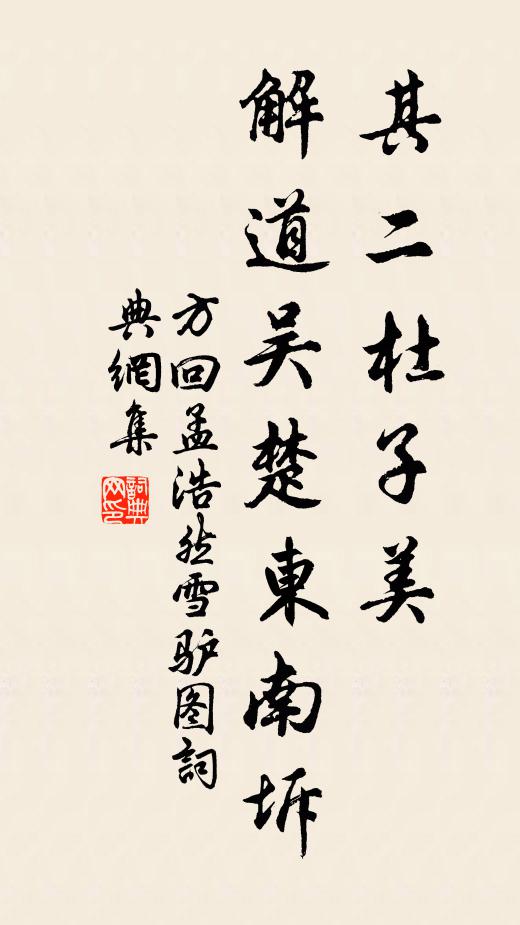 其二杜子美
解道吴楚東南坼
方回孟浩然雪驴图詞
典網集
詞典网印